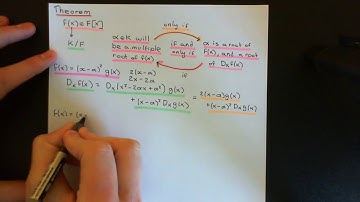 Theorem
f(x) ∈ F[x]
K/F
α ∈ K will
be a multiple
root of f(x)
only if
if and
only if
if
α is a root of
f(x), and a root
of Dₓf(x)
f(x) = (x-α)² g(x)
2(x-α)
2x-2α
Dₓf(x) = Dₓ(x²-2αx+α²) g(x)
+(x-α)² Dₓg(x)
= 2(x-α)g(x)
+(x-α)² Dₓg(x)
f(x) = (x